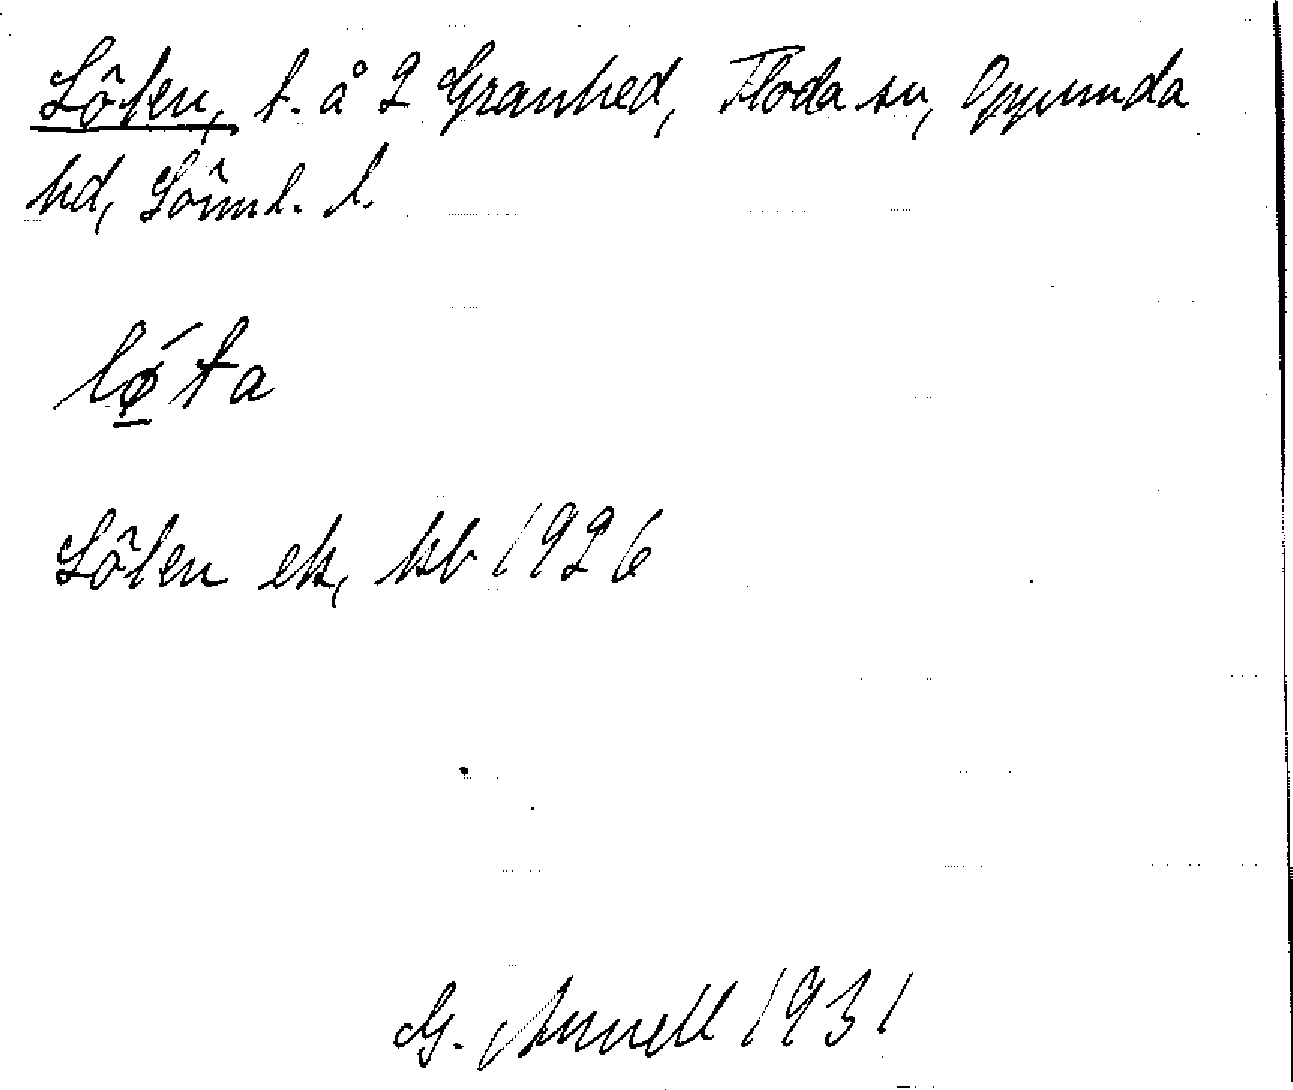 Löten, t. å 2 Granhed, Floda sn, Oppunda
hd, Sörml. l.
lǿ̲ta
Löten ek, kb 1926
G. Annell 1931